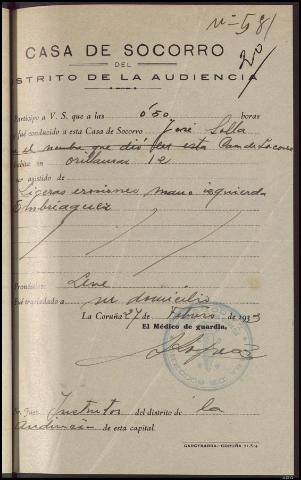 Nº 581
20/
CASA DE SOCORRO
DEL
DISTRITO DE LA AUDIENCIA
Participo a V. S. que a las 0'50 horas
fué conducido a esta Casa de Socorro José Solla
el nombre que dió en esta Casa de Socorro
orillamar 12
asistido de
Ligeras erosiones mano izquierda
Embriaguez
Pronóstico: Leve
Fué trasladado a su domicilio
La Coruña 27 de Febrero de 1933
El Médico de guardia,
Sr. Juez Instructor del distrito de la
Audiencia de esta capital.